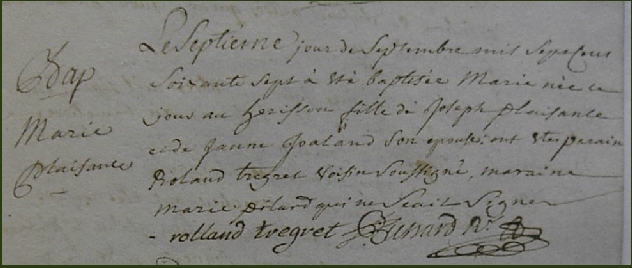 Bap
Marie
plaisance
Le septieme jour de Septembre mil sept cens
soixante sept à été baptisée Marie née ce
jour au herisson fille de Joseph plaisance
et de Janne Joaland son epouse; ont été parain
Roland tregret voisin soussigné, maraine
Marie pilard qui ne scait signer
- rolland tregret